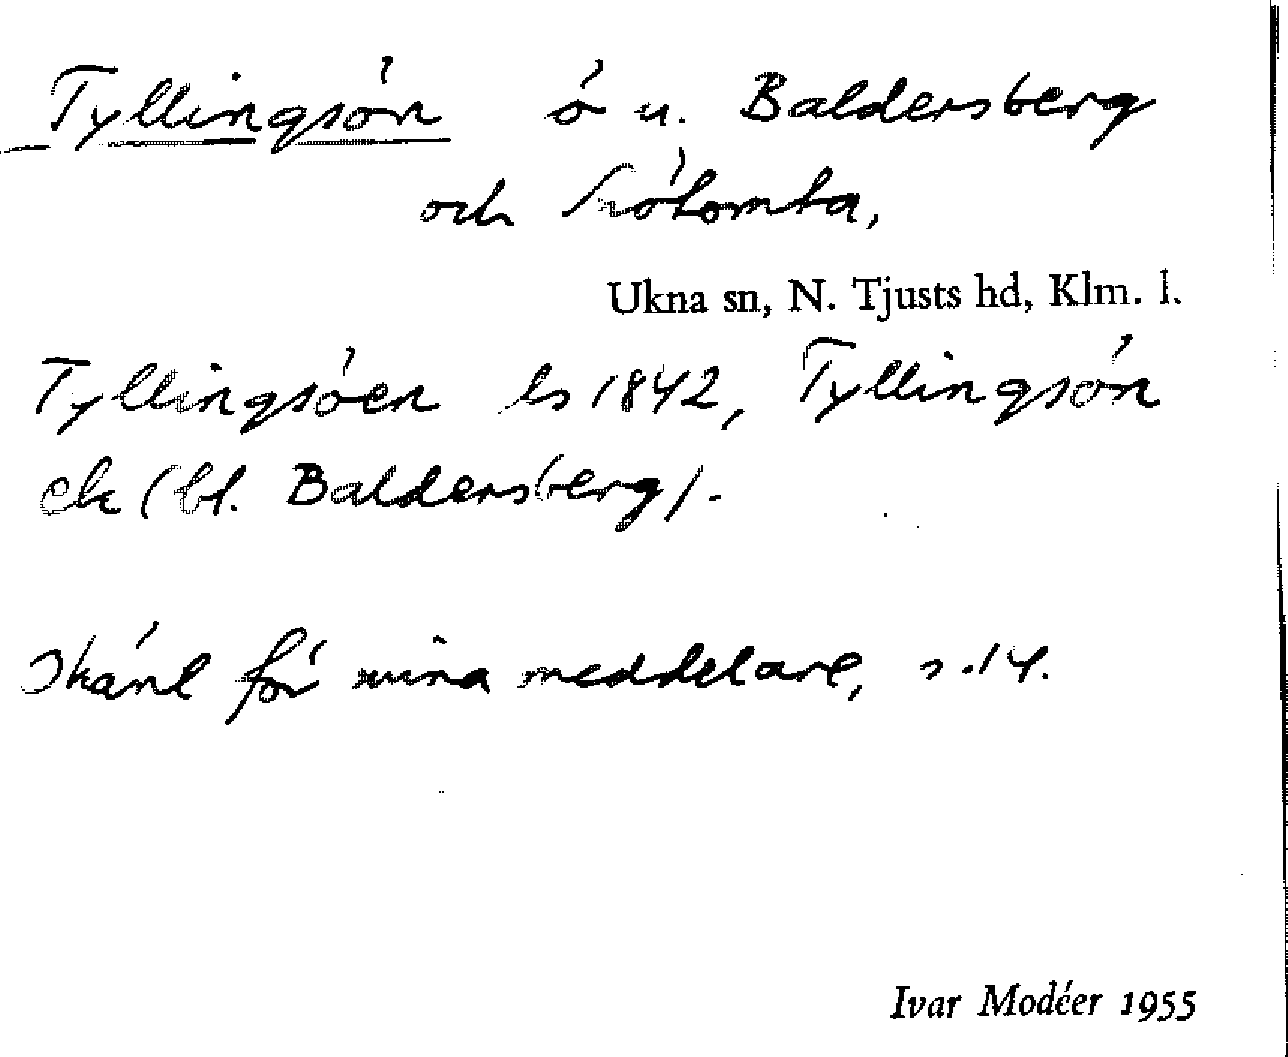 Tyllingsön ö u. Baldersberg
och Sjötomta,
Ukna sn, N. Tjusts hd, Klm. l.
Tyllingsöen ls 1842, Tyllingsön
ek (bl. Baldersberg).
Okänt för mina meddelare, s. 14.
Ivar Modéer 1955